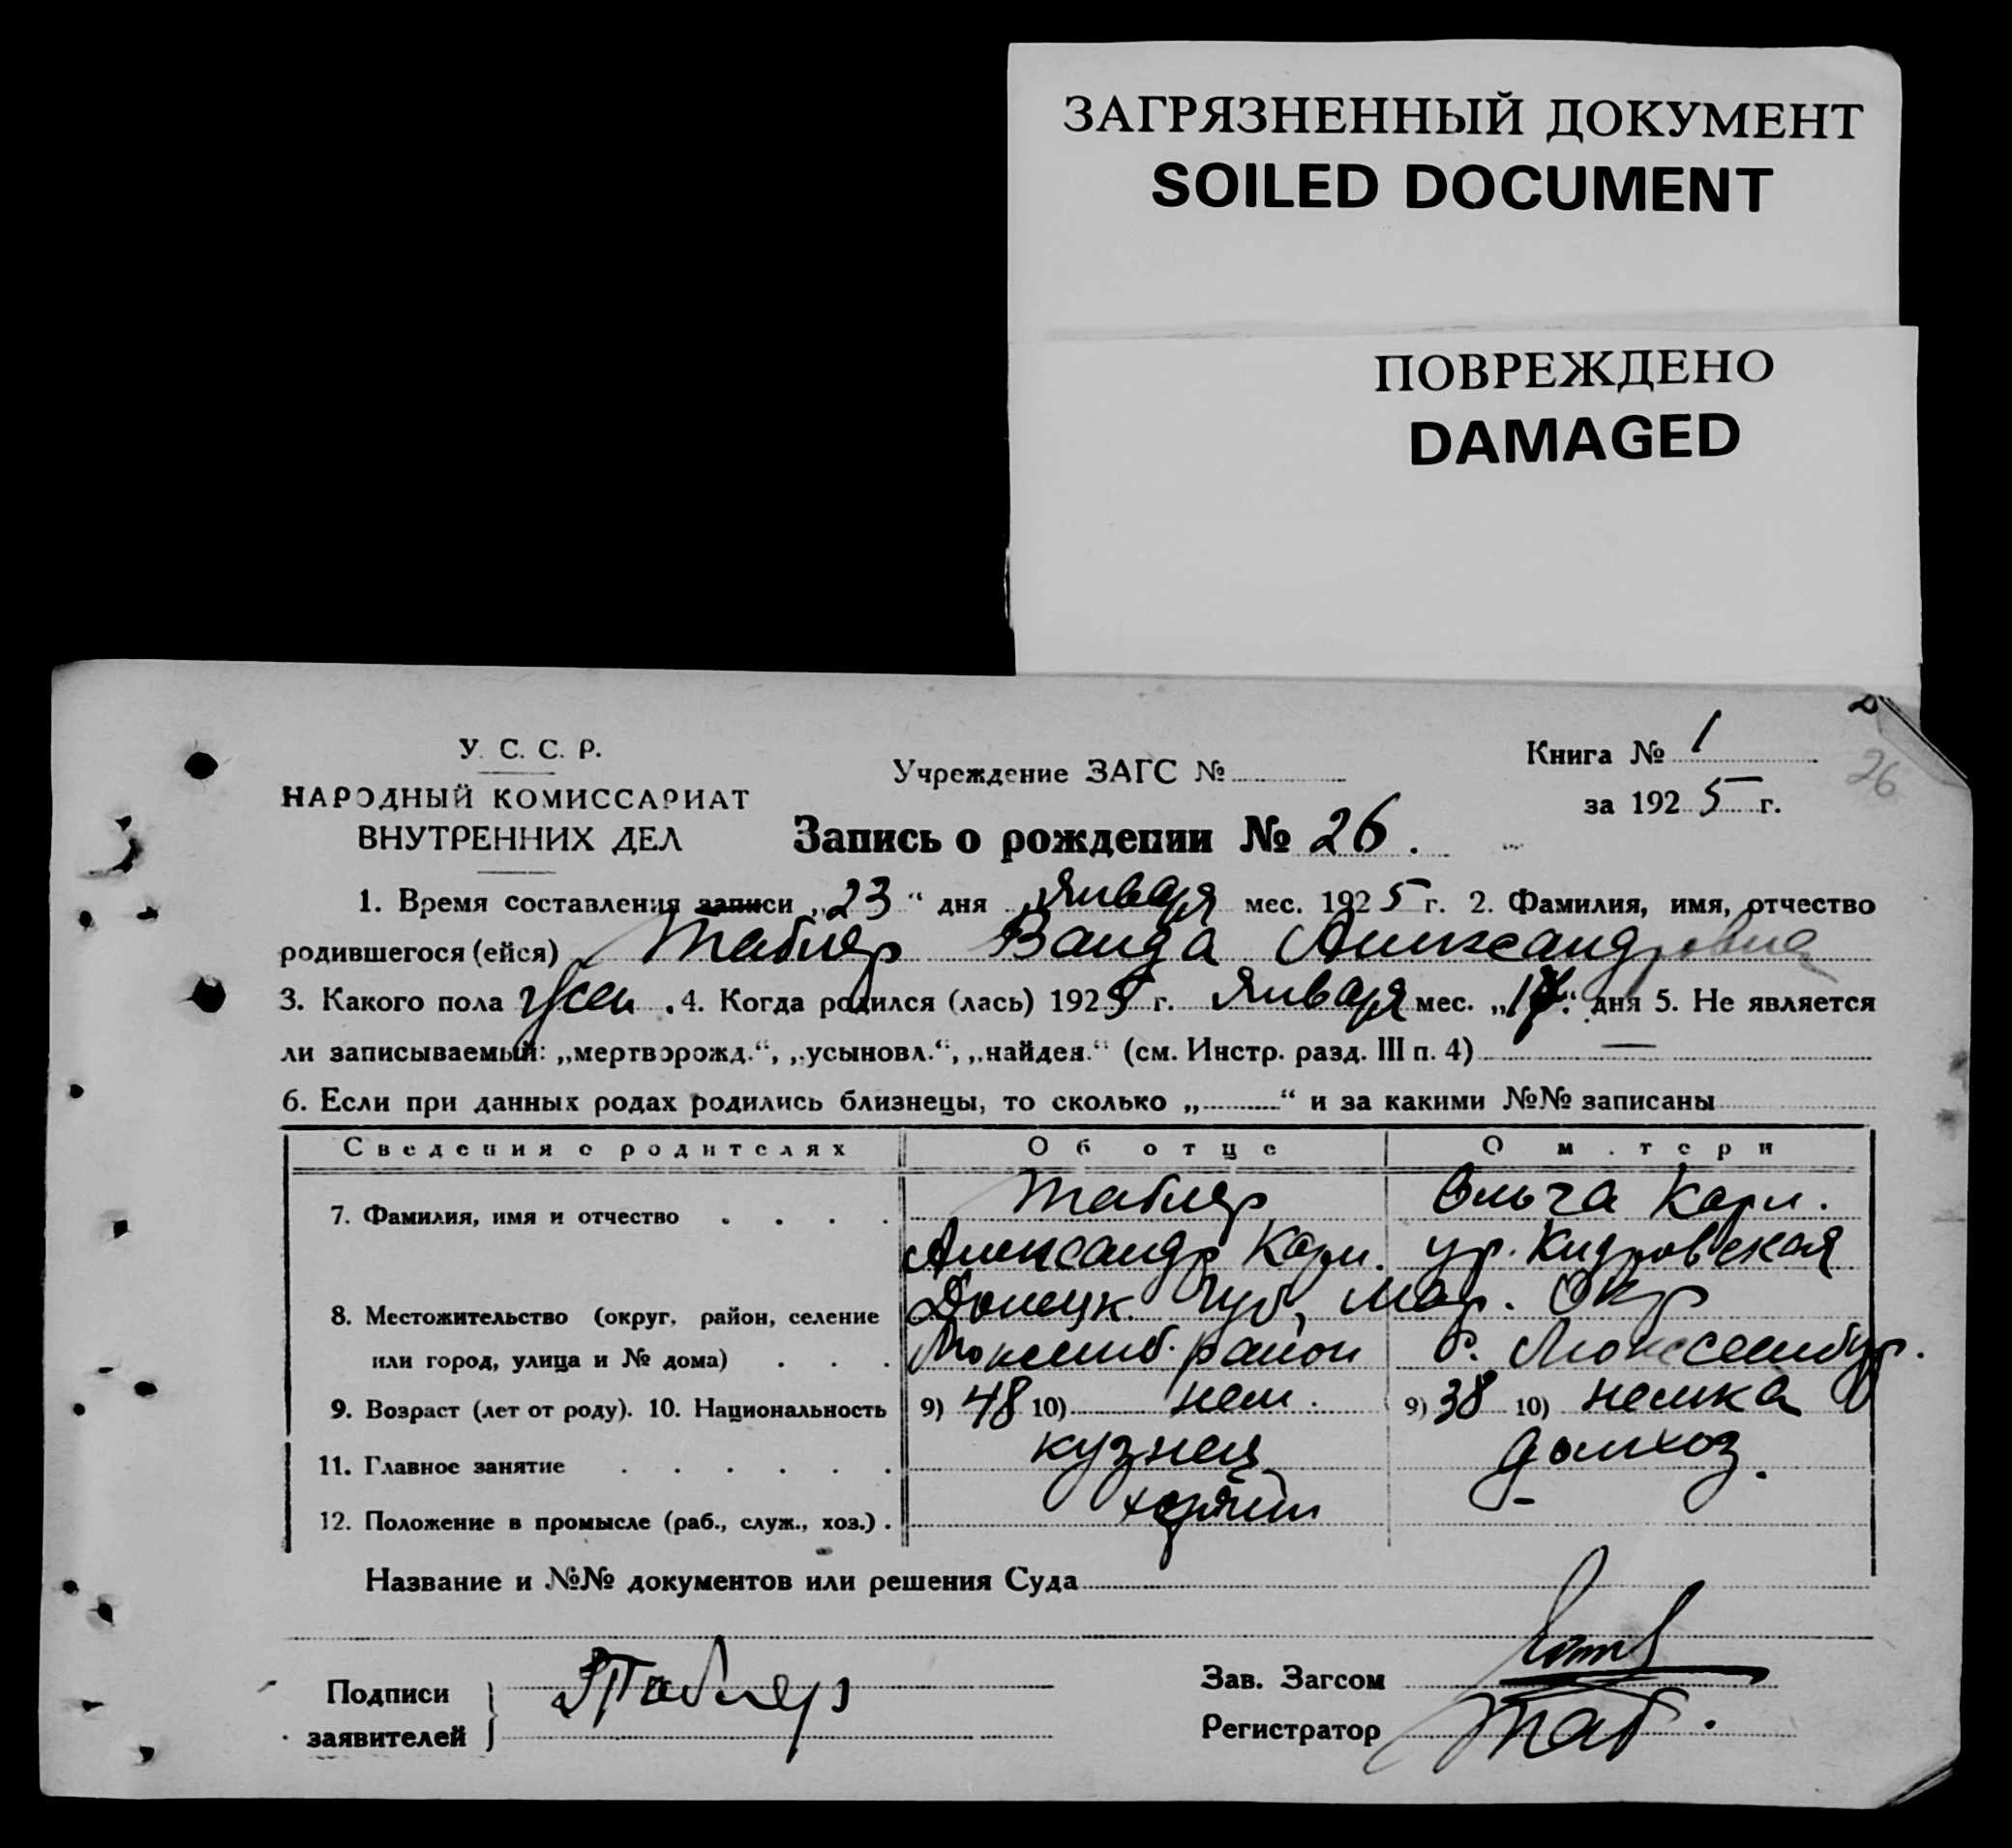 ЗАГРЯЗНЕННЫЙ ДОКУМЕНТ
SOILED DOCUMENT
ПОВРЕЖДЕНО
DAMAGED
У. С. С. Р.
НАРОДНЫЙ КОМИССАРИАТ
ВНУТРЕННИХ ДЕЛ
Учреждение ЗАГС №
Книга № 1
за 1925 г.
26
Запись о рождении № 26.
1. Время составления записи „23“ дня Января мес. 1925 г. 2. Фамилия, имя, отчество
родившегося (ейся) Таблер Ванда Александровна
3. Какого пола жен. 4. Когда родился (лась) 1925 г. Января мес. „17“ дня 5. Не является
ли записываемый: „мертворожд.“, „усыновл.“, „найден.“ (см. Инстр. разд. III п. 4) —
6. Если при данных родах родились близнецы, то сколько „“ и за какими №№ записаны
Сведения о родителях Об отце О м.тери
7. Фамилия, имя и отчество Таблер Ольга Карл.
Александр Карл. ур. Кидровская
8. Местожительство (округ, район, селение Донецк. Губ, Мар. Окр
или город, улица и № дома) Люксемб. район Люксембур.
9. Возраст (лет от роду). 10. Национальность 9) 48 10) нем. 9) 38 10) немка
11. Главное занятие кузнец домхоз.
12. Положение в промысле (раб., служ., хоз.) . хозяин –
Название и №№ документов или решения Суда
Подписи заявителей Таблер
Зав. Загсом
Регистратор Таб.